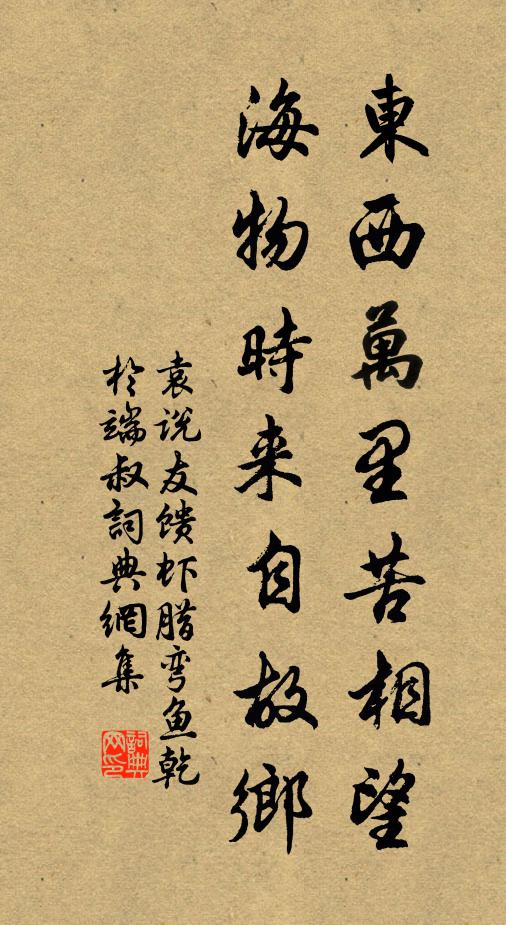 東西萬里苦相望
海物時来自故鄉
袁说友馈虾腊弯鱼乾
於端叔詞典網集
詞典
网印